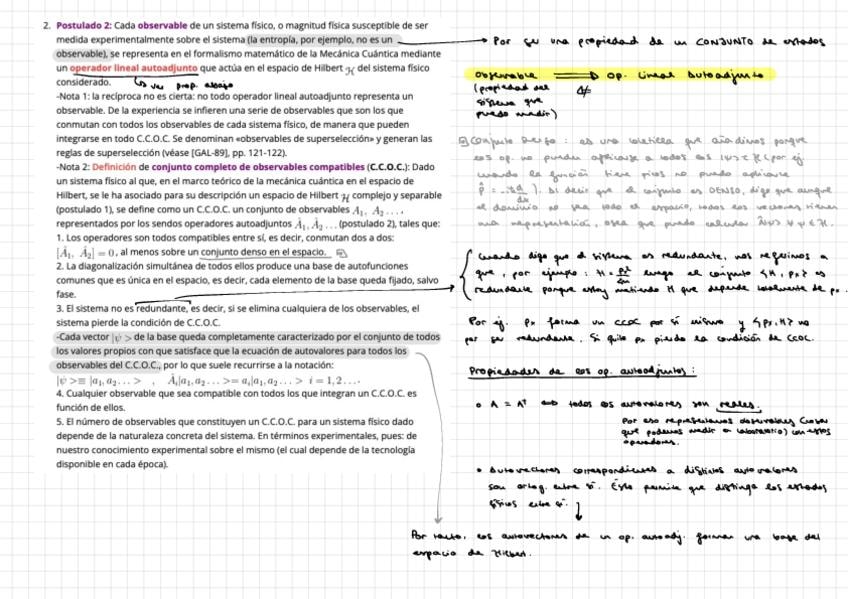 2. Postulado 2: Cada observable de un sistema físico, o magnitud física susceptible de ser
medida experimentalmente sobre el sistema (la entropía, por ejemplo, no es un
observable), se representa en el formalismo matemático de la Mecánica Cuántica mediante
un operador lineal autoadjunto que actúa en el espacio de Hilbert H del sistema físico
considerado.
↳ ver prop. abajo
-Nota 1: la recíproca no es cierta: no todo operador lineal autoadjunto representa un
observable. De la experiencia se infieren una serie de observables que son los que
conmutan con todos los observables de cada sistema físico, de manera que pueden
integrarse en todo C.C.O.C. Se denominan «observables de superselección» y generan las
reglas de superselección (véase [GAL-89], pp. 121-122).
-Nota 2: Definición de conjunto completo de observables compatibles (C.C.O.C.): Dado
un sistema físico al que, en el marco teórico de la mecánica cuántica en el espacio de
Hilbert, se le ha asociado para su descripción un espacio de Hilbert H complejo y separable
(postulado 1), se define como un C.C.O.C. un conjunto de observables A₁, A₂ ...,
representados por los sendos operadores autoadjuntos Â₁, Â₂ ... (postulado 2), tales que:
1. Los operadores son todos compatibles entre sí, es decir, conmutan dos a dos:
[Â₁, Â₂] = 0, al menos sobre un conjunto denso en el espacio.
2. La diagonalización simultánea de todos ellos produce una base de autofunciones
comunes que es única en el espacio, es decir, cada elemento de la base queda fijado, salvo
fase.
3. El sistema no es redundante, es decir, si se elimina cualquiera de los observables, el
sistema pierde la condición de C.C.O.C.
-Cada vector |ψ > de la base queda completamente caracterizado por el conjunto de todos
los valores propios con que satisface que la ecuación de autovalores para todos los
observables del C.C.O.C., por lo que suele recurrirse a la notación:
|ψ >≡ |a₁, a₂ ... > , Âᵢ|a₁, a₂ ... >= aᵢ|a₁, a₂ ... > i = 1, 2 ....
4. Cualquier observable que sea compatible con todos los que integran un C.C.O.C. es
función de ellos.
5. El número de observables que constituyen un C.C.O.C. para un sistema físico dado
depende de la naturaleza concreta del sistema. En términos experimentales, pues: de
nuestro conocimiento experimental sobre el mismo (el cual depende de la tecnología
disponible en cada época).
Por ser una propiedad de un CONJUNTO de estados
Observable ⟹ op. lineal autoadjunto
(propiedad del
sistema que
puedo medir)
Conjunto Denso: es una coletilla que añadimos porque
los op. no pueden aplicarse a todos los |ψ> ∈ H (por ej.
cuando la función tiene picos no puedo aplicarle
). Al decir que el conjunto es DENSO, digo que aunque
el dominio no sea todo el espacio, todos los vectores tienen
una representación, o sea que puedo calcular
Cuando digo que el sistema es redundante, nos referimos a
que, por ejemplo: H = p²/2m luego el conjunto {H, Px} es
redundante porque estoy metiendo H que depende de px.
Por ej. Px forma un CCOC por sí mismo y {Px, H} no
por ser redundante. Si quito px pierdo la condición de CCOC.
Propiedades de los op. autoadjuntos:
• A = A† ⟺ todos los autovalores son reales.
Por eso representamos observables (cosas
que podemos medir en laboratorio) con estos
operadores.
• Autovectores correspondientes a distintos autovalores
son ortog. entre sí. Esto permite que distinga los estados
físicos entre sí.
Por tanto, los autovectores de un op. autoadj. forman una base del
espacio de Hilbert.